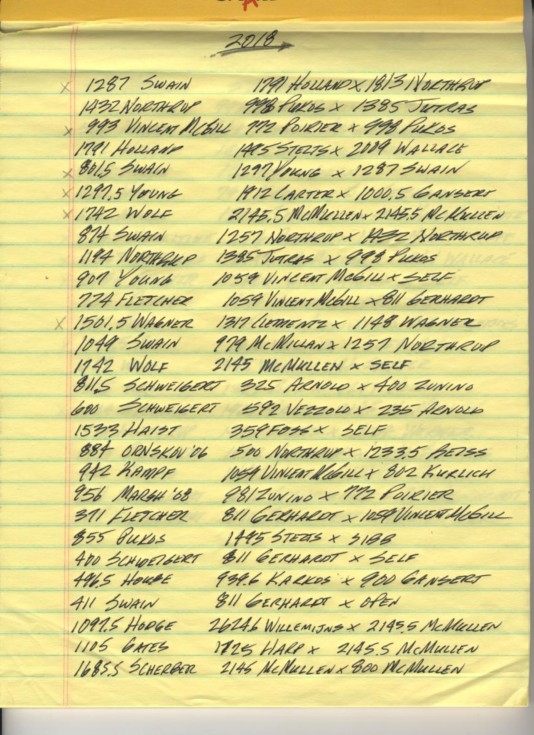 2018
x 1287 SWAIN 1791 HOLLAND x 1813 NORTHRUP
1432 NORTHRUP 998 PUKOS x 1385 JUTRAS
x 993 VINCENT MCGILL 772 POIRIER x 998 PUKOS
1791 HOLLAND 1495 STELTS x 2009 WALLACE
x 801.5 SWAIN 1297 YOUNG x 1287 SWAIN
x 1297.5 YOUNG 1912 CARTER x 1000.5 GANSERT
x 1742 WOLF 2145.5 MCMULLEN x 2145.5 MCMULLEN
874 SWAIN 1257 NORTHRUP x 1432 NORTHRUP
1194 NORTHRUP 1385 JUTRAS x 998 PUKOS
907 YOUNG 1059 VINCENT MCGILL x SELF
774 FLETCHER 1059 VINCENT MCGILL x 811 GERHARDT
x 1501.5 WAGNER 1317 CLEMENTZ x 1148 WAGNER
1049 SWAIN 979 MCMILLAN x 1257 NORTHRUP
1742 WOLF 2145 MCMULLEN x SELF
811.5 SCHWEIGERT 325 ARNOLD x 400 ZUNINO
600 SCHWEIGERT 592 VEZZOLO x 235 ARNOLD
1533 HAIST 359 FOSS x SELF
884 ORNSKOV '06 500 NORTHRUP x 1233.5 BEISS
942 KAMPF 1059 VINCENT MCGILL x 802 KURLICH
956 MARSH '08 981 ZUNINO x 772 POIRIER
371 FLETCHER 811 GERHARDT x 1059 VINCENT MCGILL
855 PUKOS 1495 STELTS x SIBB
400 SCHWEIGERT 811 GERHARDT x SELF
496.5 HOUSE 939.6 KARKOS x 900 GANSERT
411 SWAIN 811 GERHARDT x OPEN
1097.5 HODGE 2624.6 WILLEMIJNS x 2145.5 MCMULLEN
1105 GATES 1725 HARP x 2145.5 MCMULLEN
1685.5 SCHERBER 2145 MCMULLEN x 800 MCMULLEN